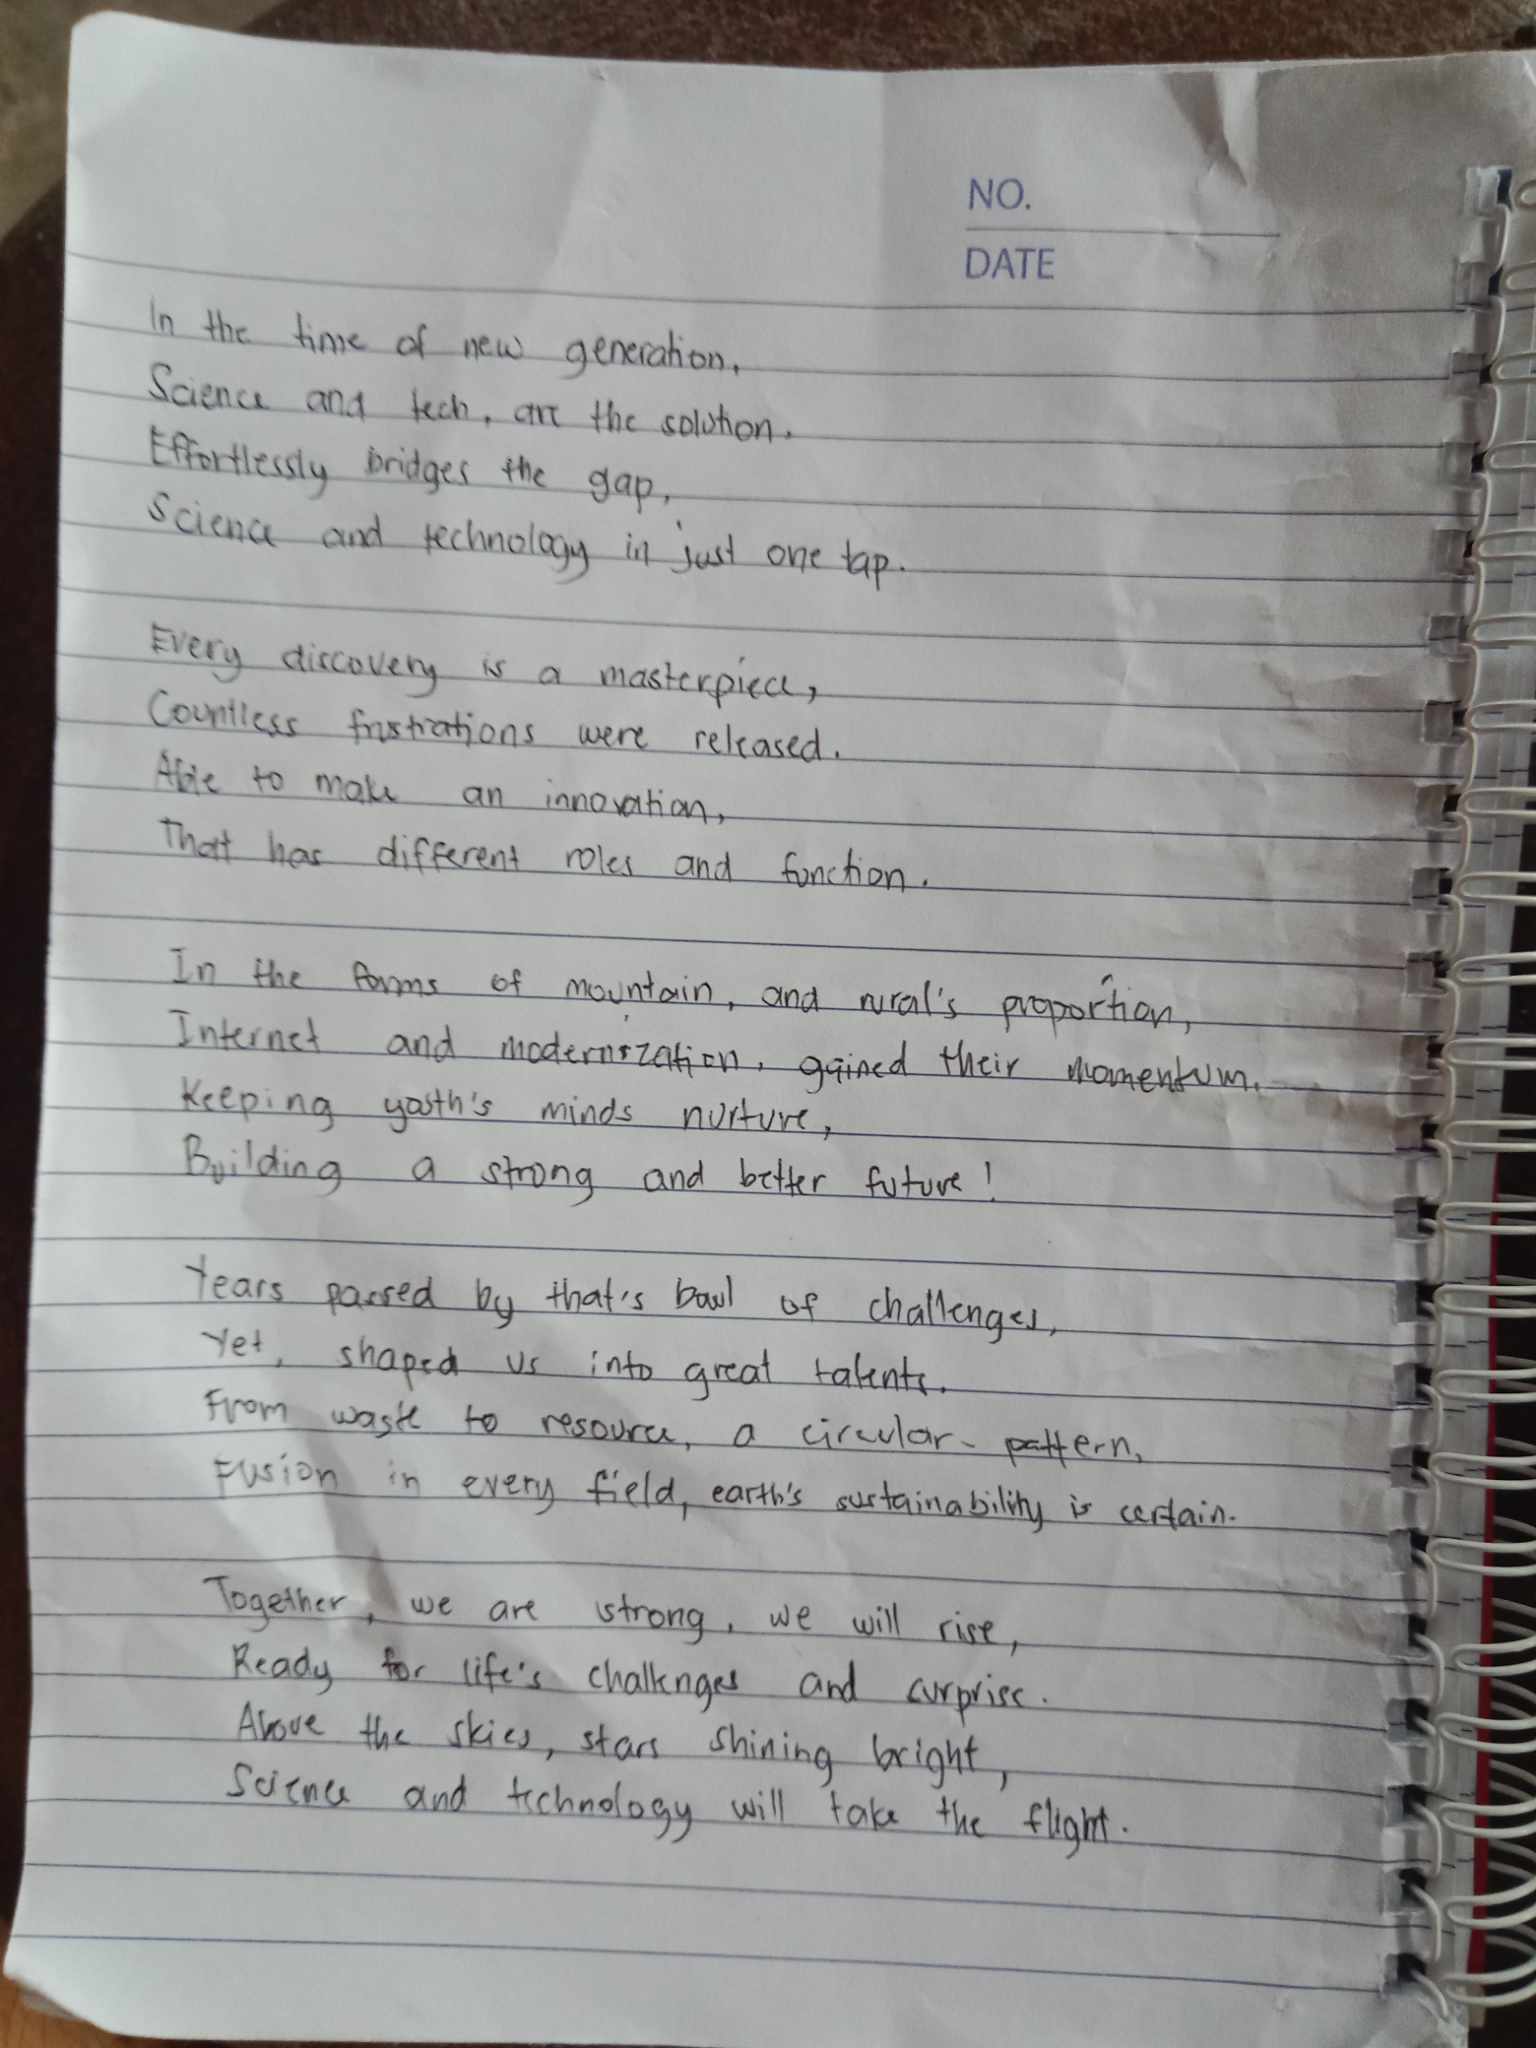 NO.
DATE
In the time of new generation,
Science and tech, are the solution.
Effortlessly bridges the gap,
Science and technology in just one tap.
Every discovery is a masterpiece,
Countless frustrations were released.
Able to make an innovation,
That has different roles and function.
In the forms of mountain, and rural's proportion,
Internet and modernization, gained their momentum.
Keeping youth's minds nurture,
Building a strong and better future!
Years passed by that's bowl of challenges,
Yet, shaped us into great talents.
From waste to resource, a circular- pattern,
Fusion in every field, earth's sustainability is certain.
Together, we are strong, we will rise,
Ready for life's challenges and surprise.
Above the skies, stars shining bright,
Science and technology will take the flight.